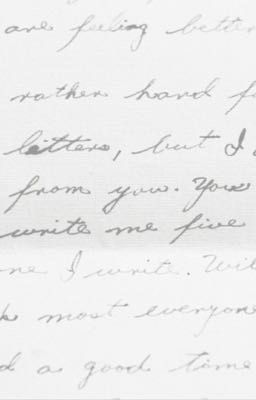 are feeling better
rather hard f
letters, but I
from you. You
write me five
ne I write. Wil
k most everyone
d a good time